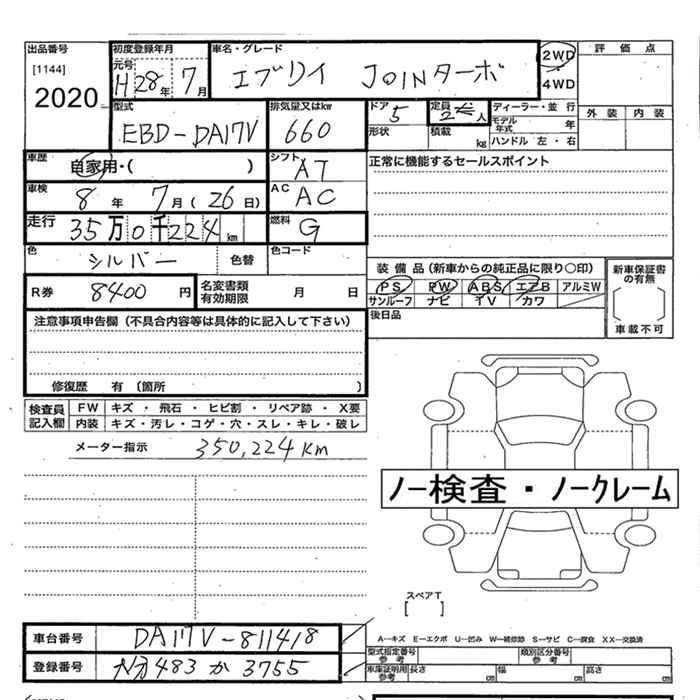 出品番号 初度登録年月 車名・グレード 2WD 評価点
[1144] 元号 H28年 7月 エブリイ JOINターボ 4WD
2020
型式 排気量又はkw ドア 定員 ディーラー・並行 外装 内装
EBD-DA17V 660 5 人 モデル年式 年
形状 積載 kg ハンドル 左・右
車歴 自家用・( ) シフト AT 正常に機能するセールスポイント
車検 8年 7月(26日) AC AC
走行 35万0千224km 燃料 G
色 シルバー 色替 色コード
装備品(新車からの純正品に限り○印) 新車保証書の有無
R券 8400円 名変書類有効期限 月 日 PS PW ABS エアB アルミW
サンルーフ ナビ TV カワ
車載不可
注意事項申告欄(不具合内容等は具体的に記入して下さい) 後日品
修復歴 有 (箇所 )
検査員記入欄 FW キズ・飛石・ヒビ割・リペア跡・X要
内装 キズ・汚レ・コゲ・穴・スレ・キレ・破レ
メーター指示 350,224km
ノー検査・ノークレーム
スペアT
[ ]
車台番号 DA17V-811418 A―キズ E―エクボ U―凹み W―補修跡 S―サビ C―腐食 XX―交換済
型式指定番号 参考 類別区分番号 参考
登録番号 483 か 3755 車庫証明用 参考 長さ cm 幅 cm 高さ cm